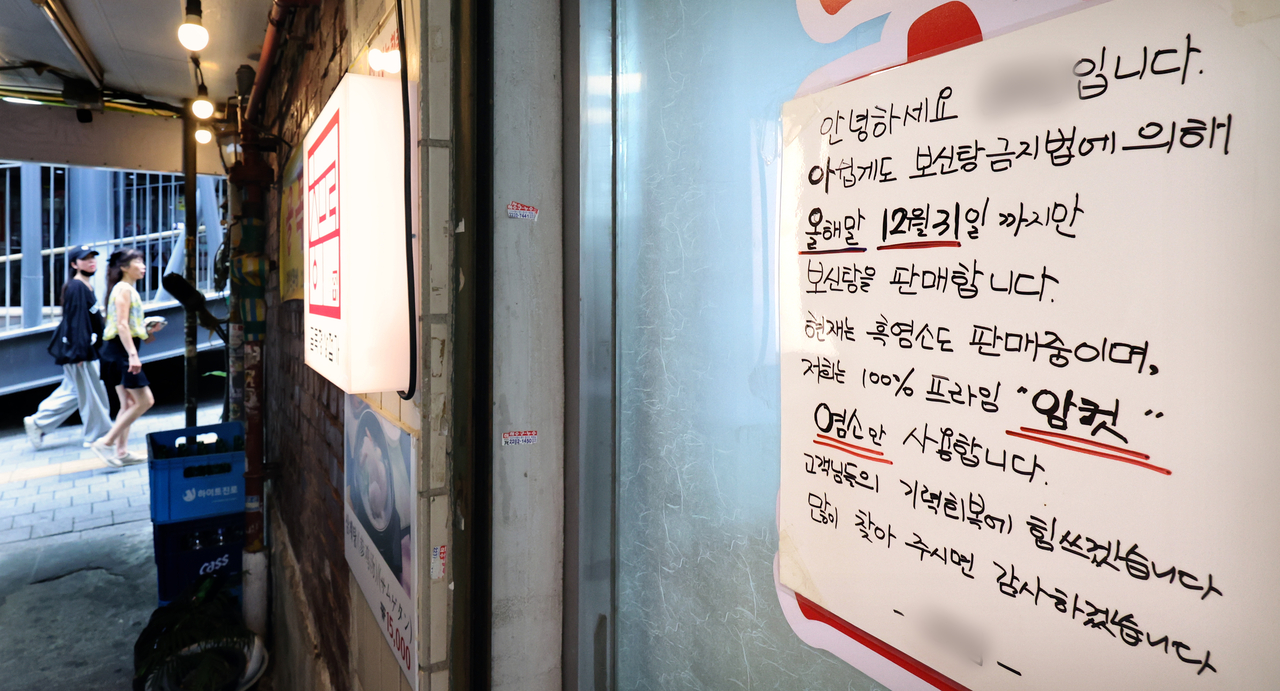 안녕하세요 입니다.
아쉽게도 보신탕금지법에 의해
올해말 12월 31일 까지만
보신탕을 판매합니다.
현재는 흑염소도 판매중이며,
저희는 100% 프라임 "암컷"
염소만 사용합니다.
고객님들의 기력회복에 힘쓰겠습니다
많이 찾아 주시면 감사하겠습니다
하이트진로
cass
15,000